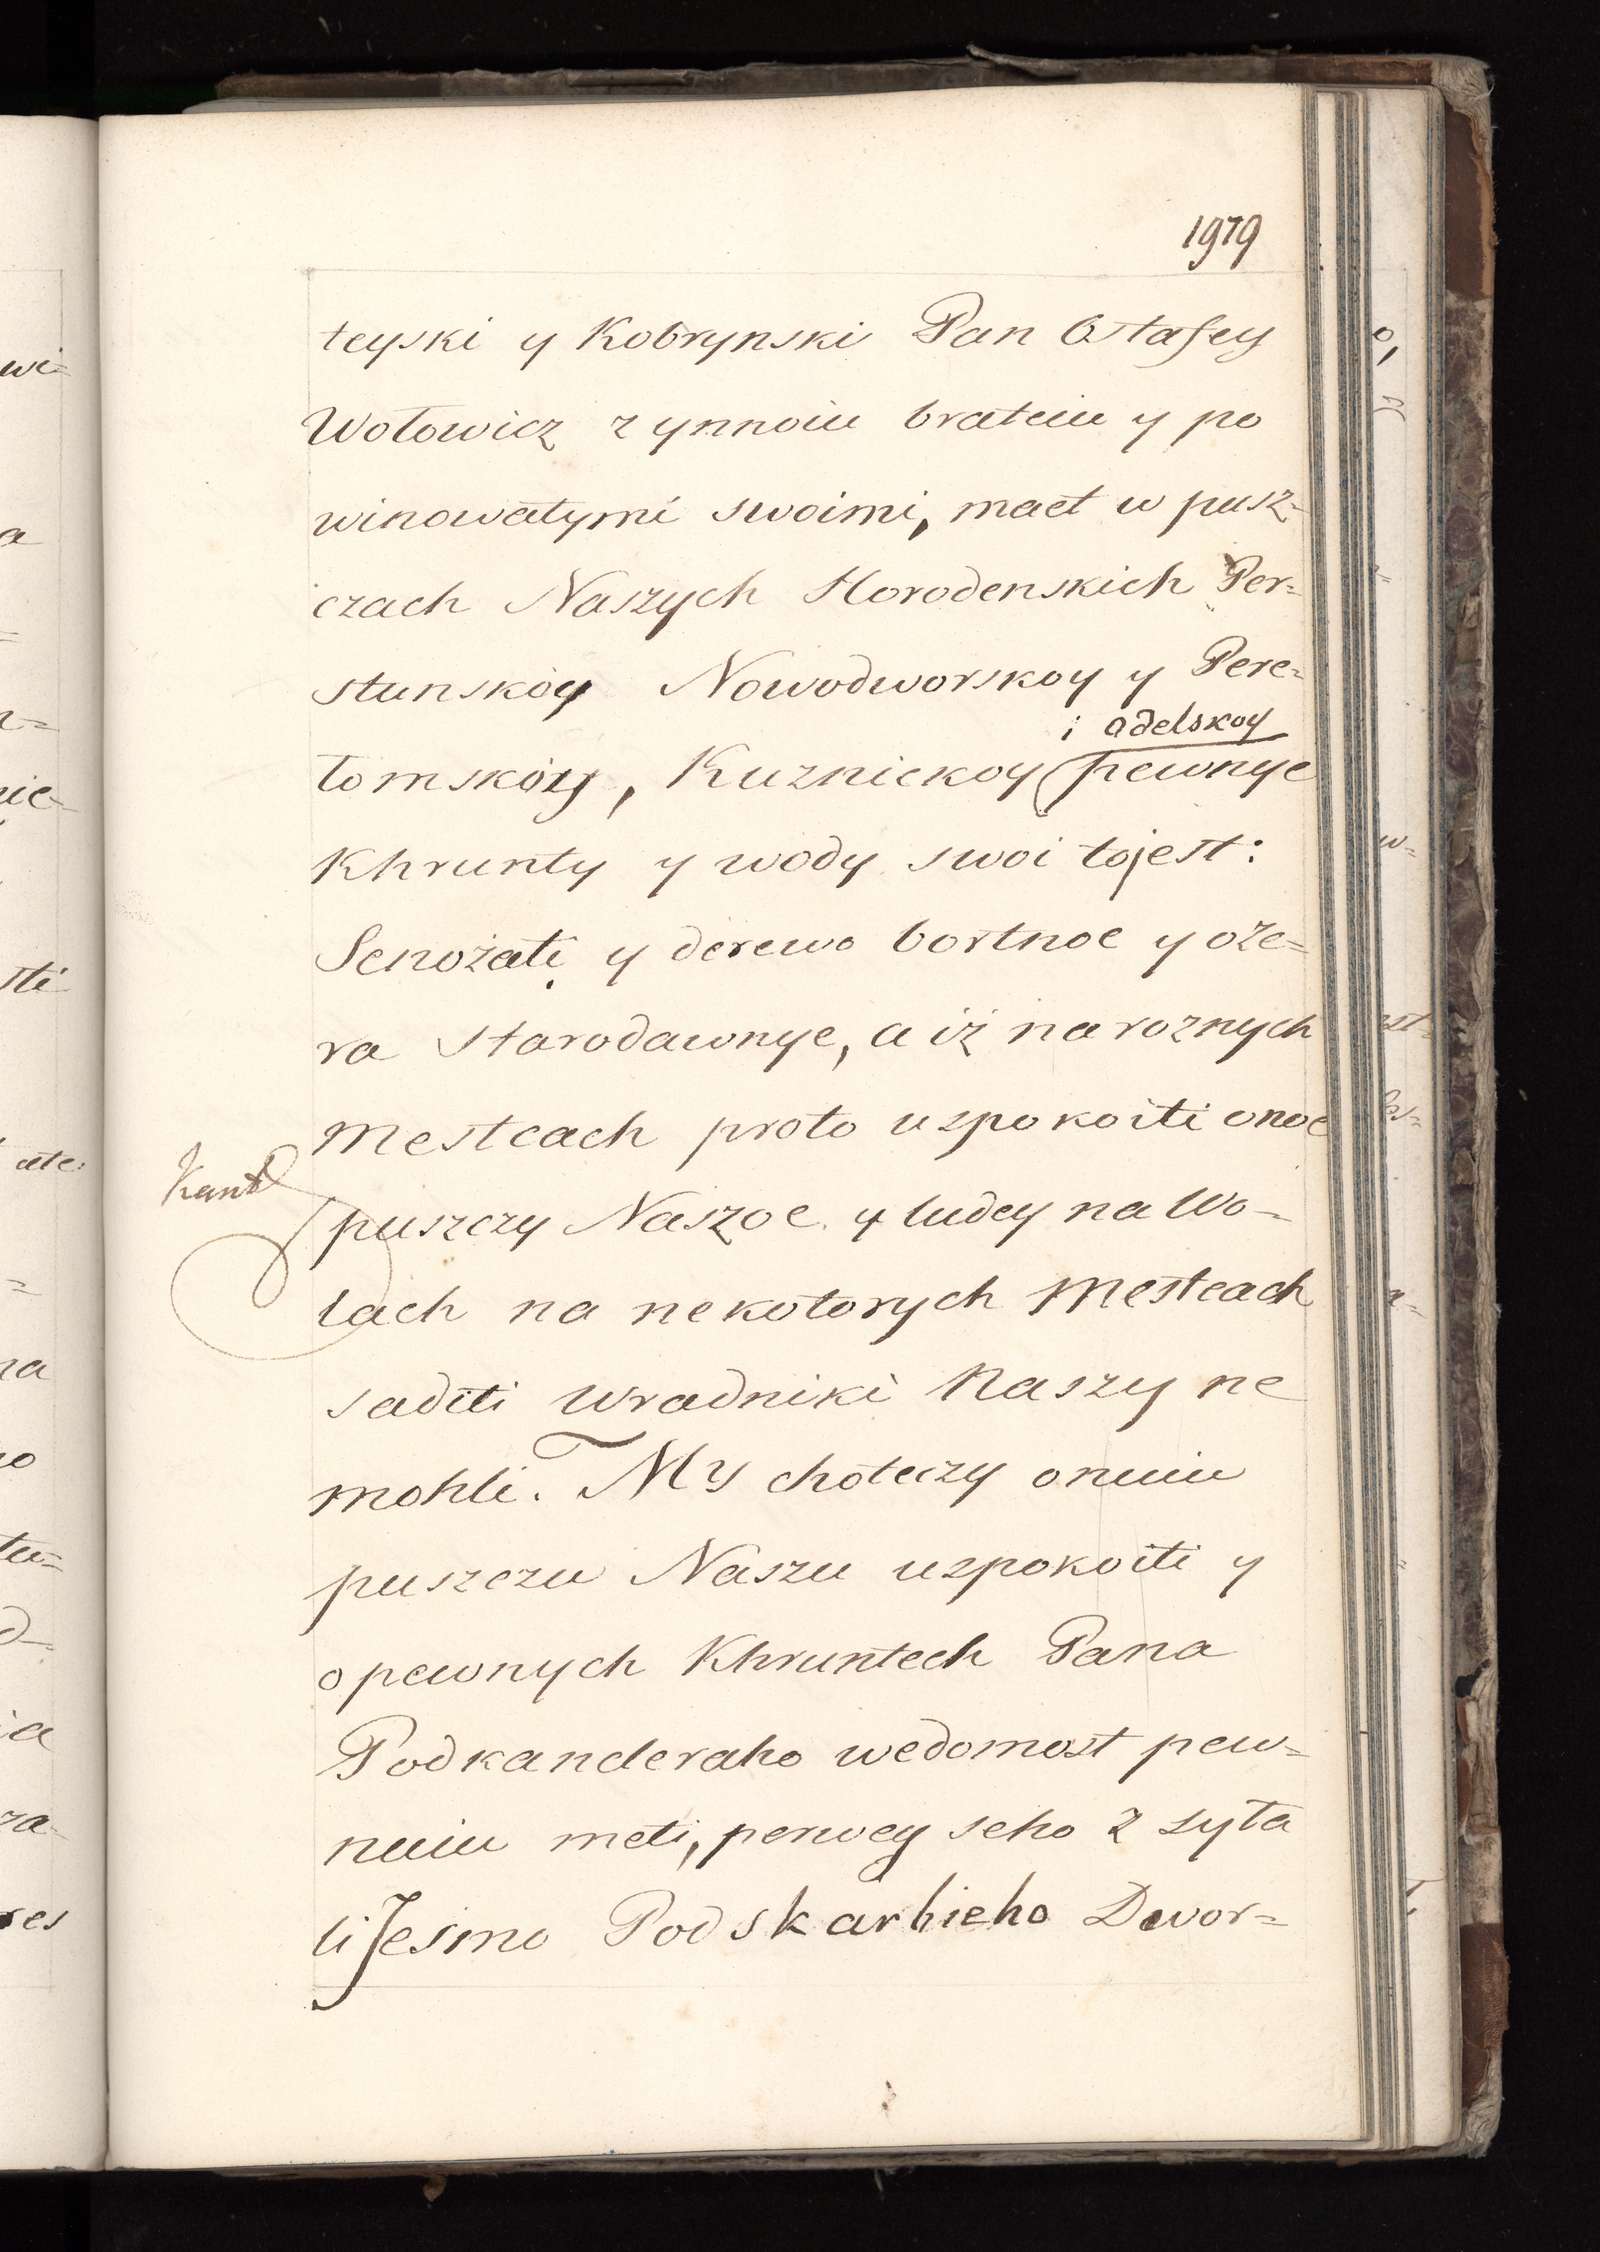 1979
teyski y Kobrynski Pan Ostafey
Wołowicz z ynnoiu brateiu y po
winowatymi swoimi, maet w pusz-
czach Naszych Horodenskich Per=
stunskoy Nowodworskoy y Pere=
i adelskoy
tomskoy, Kuznickoy pewnye
Khrunty y wody swoi tojest:
Senożati y derewo bortnoe y oze=
ra starodawnye, a iż na roznych
Mestcach proto uspokoiti onoe
puszczy Naszoe y ludey na Wo-
lach na nekotorych Mestcach
saditi Wradniki Naszy ne
mohli. My choteczy onuiu
puszczu Naszu uspokoiti y
o pewnych Khruntech Pana
Podkancleraho wedomost pew=
nuiu meti, perwey seho z syła
li Jesmo Podskarbieho Dwor=